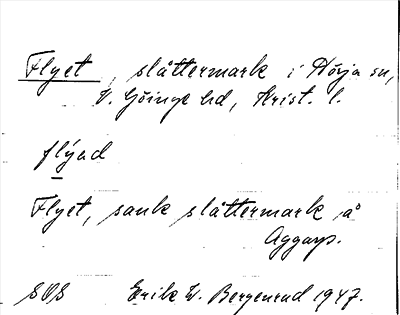 Flyet, slåttermark i Hörja sn,
V. Göinge hd, Krist. l.
flýad
Flyet, sank slåttermark å
Aggarp.
SOS Erik W. Bergenrud 1947.